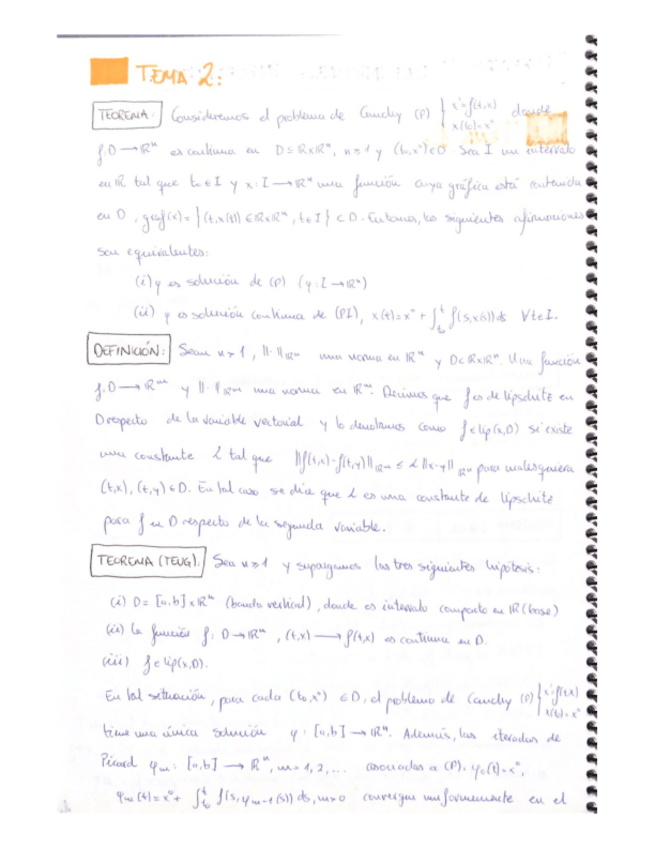 TEMA 2:
TEOREMA: Consideremos el problema de Cauchy (P) { x'=f(t,x) x(t₀)=x⁰ donde
f:D→ℝⁿ es continua en D⊆ℝxℝⁿ, n≥1 y (t₀,x⁰)∈D. Sea I un intervalo
en ℝ tal que t₀∈I y x:I→ℝⁿ una función cuya gráfica está contenida
en D, graf(x)={(t,x(t))∈ℝxℝⁿ, t∈I}⊂D. Entonces, las siguientes afirmaciones
son equivalentes:
(i) φ es solución de (P) (φ:I→ℝⁿ)
(ii) φ es solución continua de (PI), x(t)=x⁰+∫_{t₀}^{t} f(s,x(s))ds ∀t∈I.
DEFINICIÓN: Sean n≥1, ||·||_{ℝⁿ} una norma en ℝⁿ y D⊂ℝxℝⁿ. Una función
f:D→ℝᵐ y ||·||_{ℝᵐ} una norma en ℝᵐ. Decimos que f es de Lipschitz en
D respecto de la variable vectorial y lo denotamos como f∈Lip(x,D) si existe
una constante L tal que ||f(t,x)-f(t,y)||_{ℝᵐ} ≤ L||x-y||_{ℝⁿ} para cualesquiera
(t,x),(t,y)∈D. En tal caso se dice que L es una constante de Lipschitz
para f en D respecto de la segunda variable.
TEOREMA (TEUG): Sea n≥1 y supongamos las tres siguientes hipótesis:
(i) D=[a,b]xℝⁿ (banda vertical), donde es intervalo compacto en ℝ (base)
(ii) la función f:D→ℝⁿ, (t,x)→f(t,x) es continua en D.
(iii) f∈Lip(x,D).
En tal situación, para cada (t₀,x⁰)∈D, el problema de Cauchy (P) { x'=f(t,x) x(t₀)=x⁰
tiene una única solución φ:[a,b]→ℝⁿ. Además, las iteradas de
Picard φₘ:[a,b]→ℝⁿ, m=1,2,... asociadas a (P): φ₀(t)=x⁰,
φₘ(t)=x⁰+∫_{t₀}^{t} f(s,φₘ₋₁(s))ds, m>0 convergen uniformemente en el